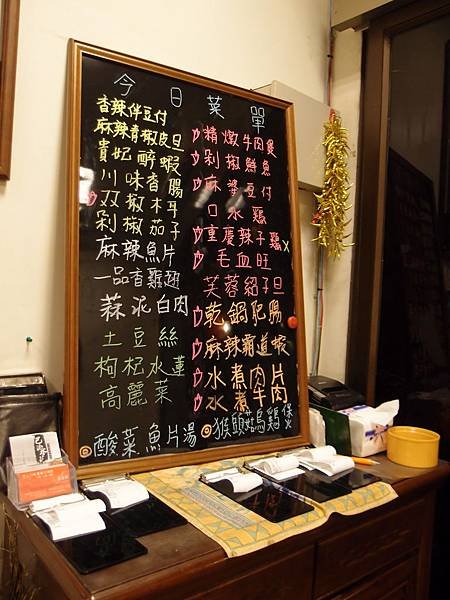 今日菜單
香辣伴豆付
麻辣青椒皮旦
貴妃醉蝦
川味香腸
双椒木耳
剁椒茄子
麻辣魚片
一品香雞翅
蒜泥白肉
土豆絲
枸杞水蓮
高麗菜
酸菜魚片湯
精燉牛肉煲
剁椒鮮魚
麻婆豆付
口水鷄
重慶辣子鷄x
毛血旺
芙蓉紹子旦
乾鍋肥腸
麻辣霸道蝦
水煮肉片
水煮牛肉
猴頭菇烏鷄煲